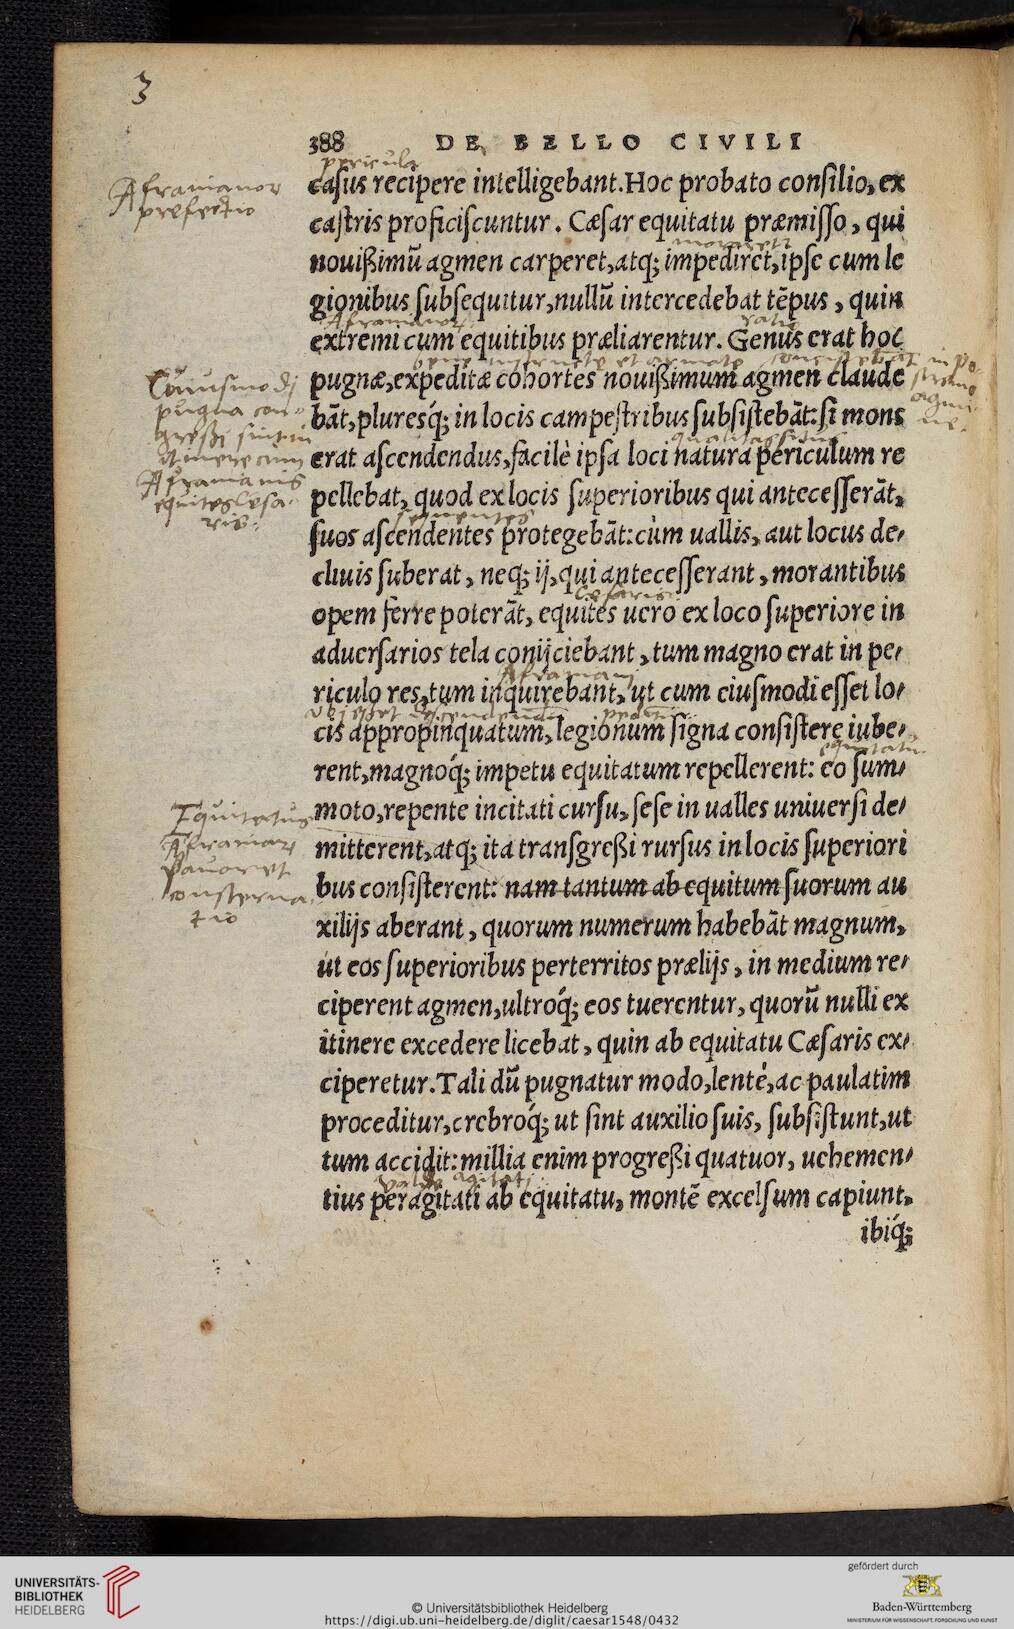 3
388 DE BELLO CIVILI
pericula
casus recipere intelligebant. Hoc probato consilio, ex
Afranianor
profectio
castris proficiscuntur. Cæsar equitatu præmisso, qui
nouißimũ agmen carperet, atq; impediret, ipse cum le
gionibus subsequitur, nullũ intercedebat tẽpus, quin
ratio
extremi cum equitibus præliarentur. Genus erat hoc
bene instructe et armate consistebat in po-
stremo
agmi-
ne.
pugnæ, expeditæ cohortes nouißimum agmen claude
bãt, pluresq́; in locis campestribus subsistebãt: si mons
erat ascendendus, facilè ipsa loci natura periculum re
Cuiusmodi
pugna con-
greßi sint in
itinere cum
Afranianis
equites Cesa-
ris.
pellebat, quod ex locis superioribus qui antecesserãt,
suos ascendentes protegebãt: cùm uallis, aut locus de-
cliuis suberat, neq; ij, qui antecesserant, morantibus
Cesaris
opem ferre poterãt, equites uero ex loco superiore in
aduersarios tela conijciebant, tum magno erat in pe-
Afraniani
riculo res, tum inquirebant, ut cum eiusmodi esset lo-
cis appropinquatum, legionum signa consistere iube-
equitatu
rent, magnoq́; impetu equitatum repellerent: eo sum-
moto, repente incitati cursu, sese in ualles uniuersi de-
mitterent, atq; ita transgreßi rursus in locis superiori
Equitatus
Afranian
pauor et
consterna-
tio
bus consisterent: nam tantum ab equitum suorum au
xilijs aberant, quorum numerum habebãt magnum,
ut eos superioribus perterritos prælijs, in medium re-
ciperent agmen, ultroq́; eos tuerentur, quorũ nulli ex
itinere excedere licebat, quin ab equitatu Cæsaris ex-
ciperetur. Tali dũ pugnatur modo, lentè, ac paulatim
proceditur, crebroq́; ut sint auxilio suis, subsistunt, ut
tum accidit: millia enim progreßi quatuor, uehemen-
valde agitati
tius peragitati ab equitatu, montẽ excelsum capiunt,
ibiq́;
UNIVERSITÄTS-
BIBLIOTHEK
HEIDELBERG
© Universitätsbibliothek Heidelberg
https://digi.ub.uni-heidelberg.de/diglit/caesar1548/0432
gefördert durch
Baden-Württemberg
MINISTERIUM FÜR WISSENSCHAFT, FORSCHUNG UND KUNST